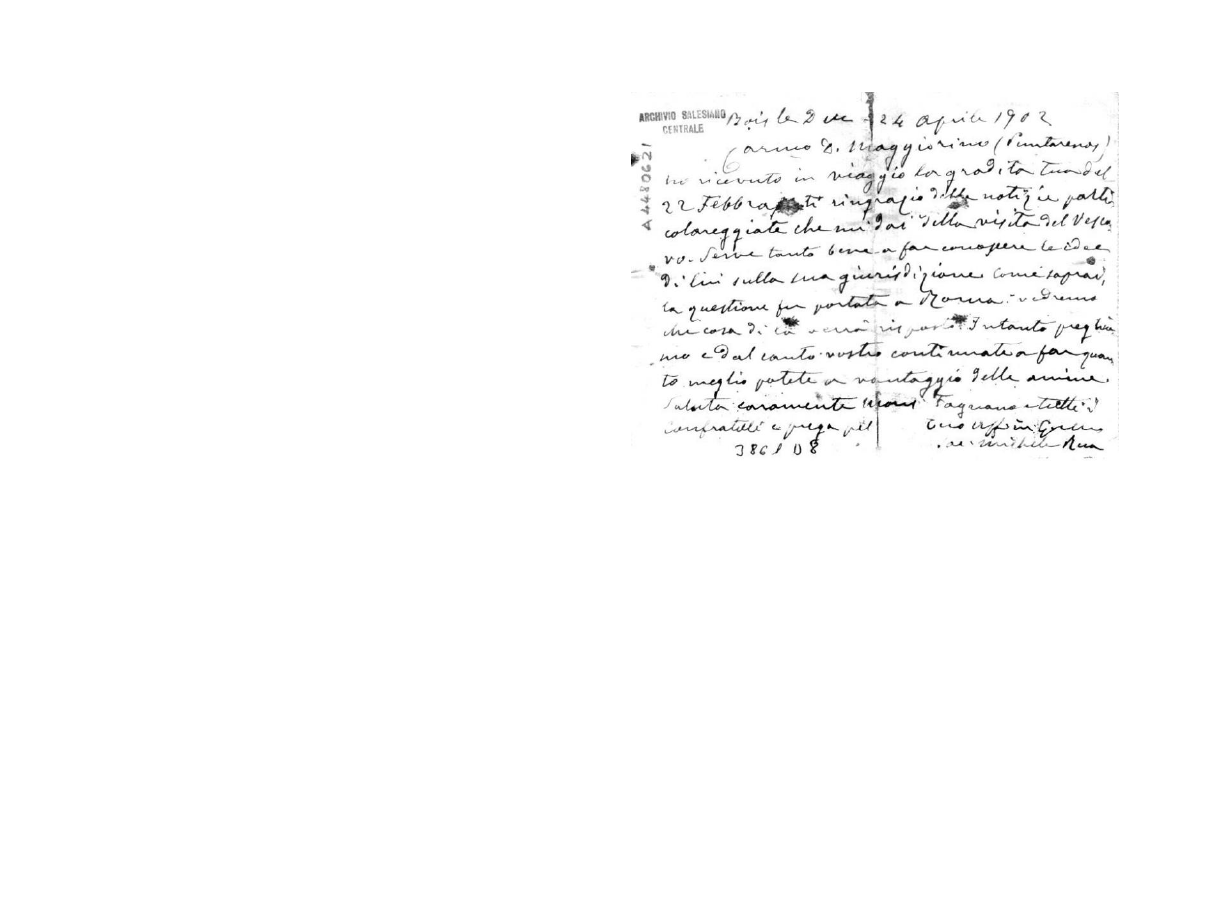 ARCHIVIO SALESIANO
CENTRALE
A4480621
Bois le Duc - 24 Aprile 1902
Carmo D. Maggiorino (Puntarenas)
ho ricevuto in viaggio la gradita tua del
22 Febbra ti ringrazio delle notizie parti
colareggiate che mi dai della visita del Vesco
vo. Serve tanto bene a far conoscere le idee
di lui sulla sua giurisdizione. Come saprai,
la questione fu portata a Roma: vedremo
che cosa di là verrà risposto. Intanto preghia
mo e dal canto vostro continuate a far quan
to meglio potete a vantaggio delle anime.
Saluta caramente Mons Fagnano e tutti i
confratelli e prega pel tuo aff in G
Michele Rua
3861 D8